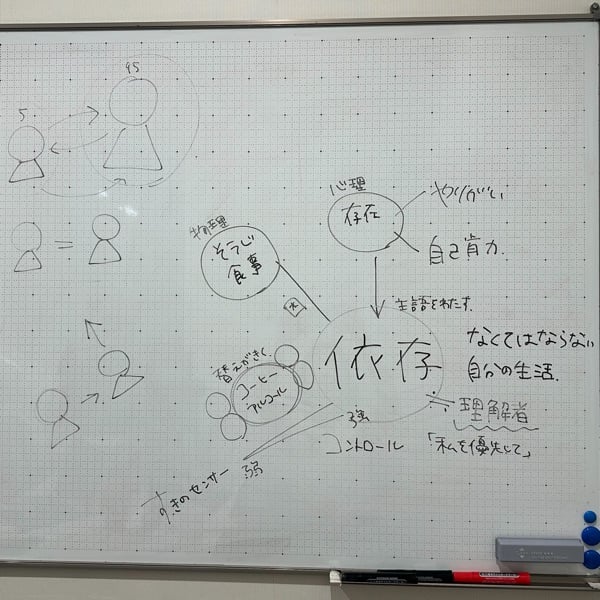 95
5
心理
存在
やりがい
自己肯力
物理
そうじ
食事
主語をわたす
依存
なくてはならない
自分の生活.
≒理解者
「私を優先して」
替えがきく
コーヒー
アルコール
強
コントロール
弱
すきのセンサー